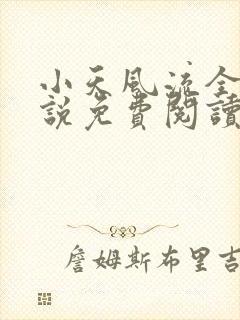 小天風流全
說免費閱讀
詹姆斯布里吉